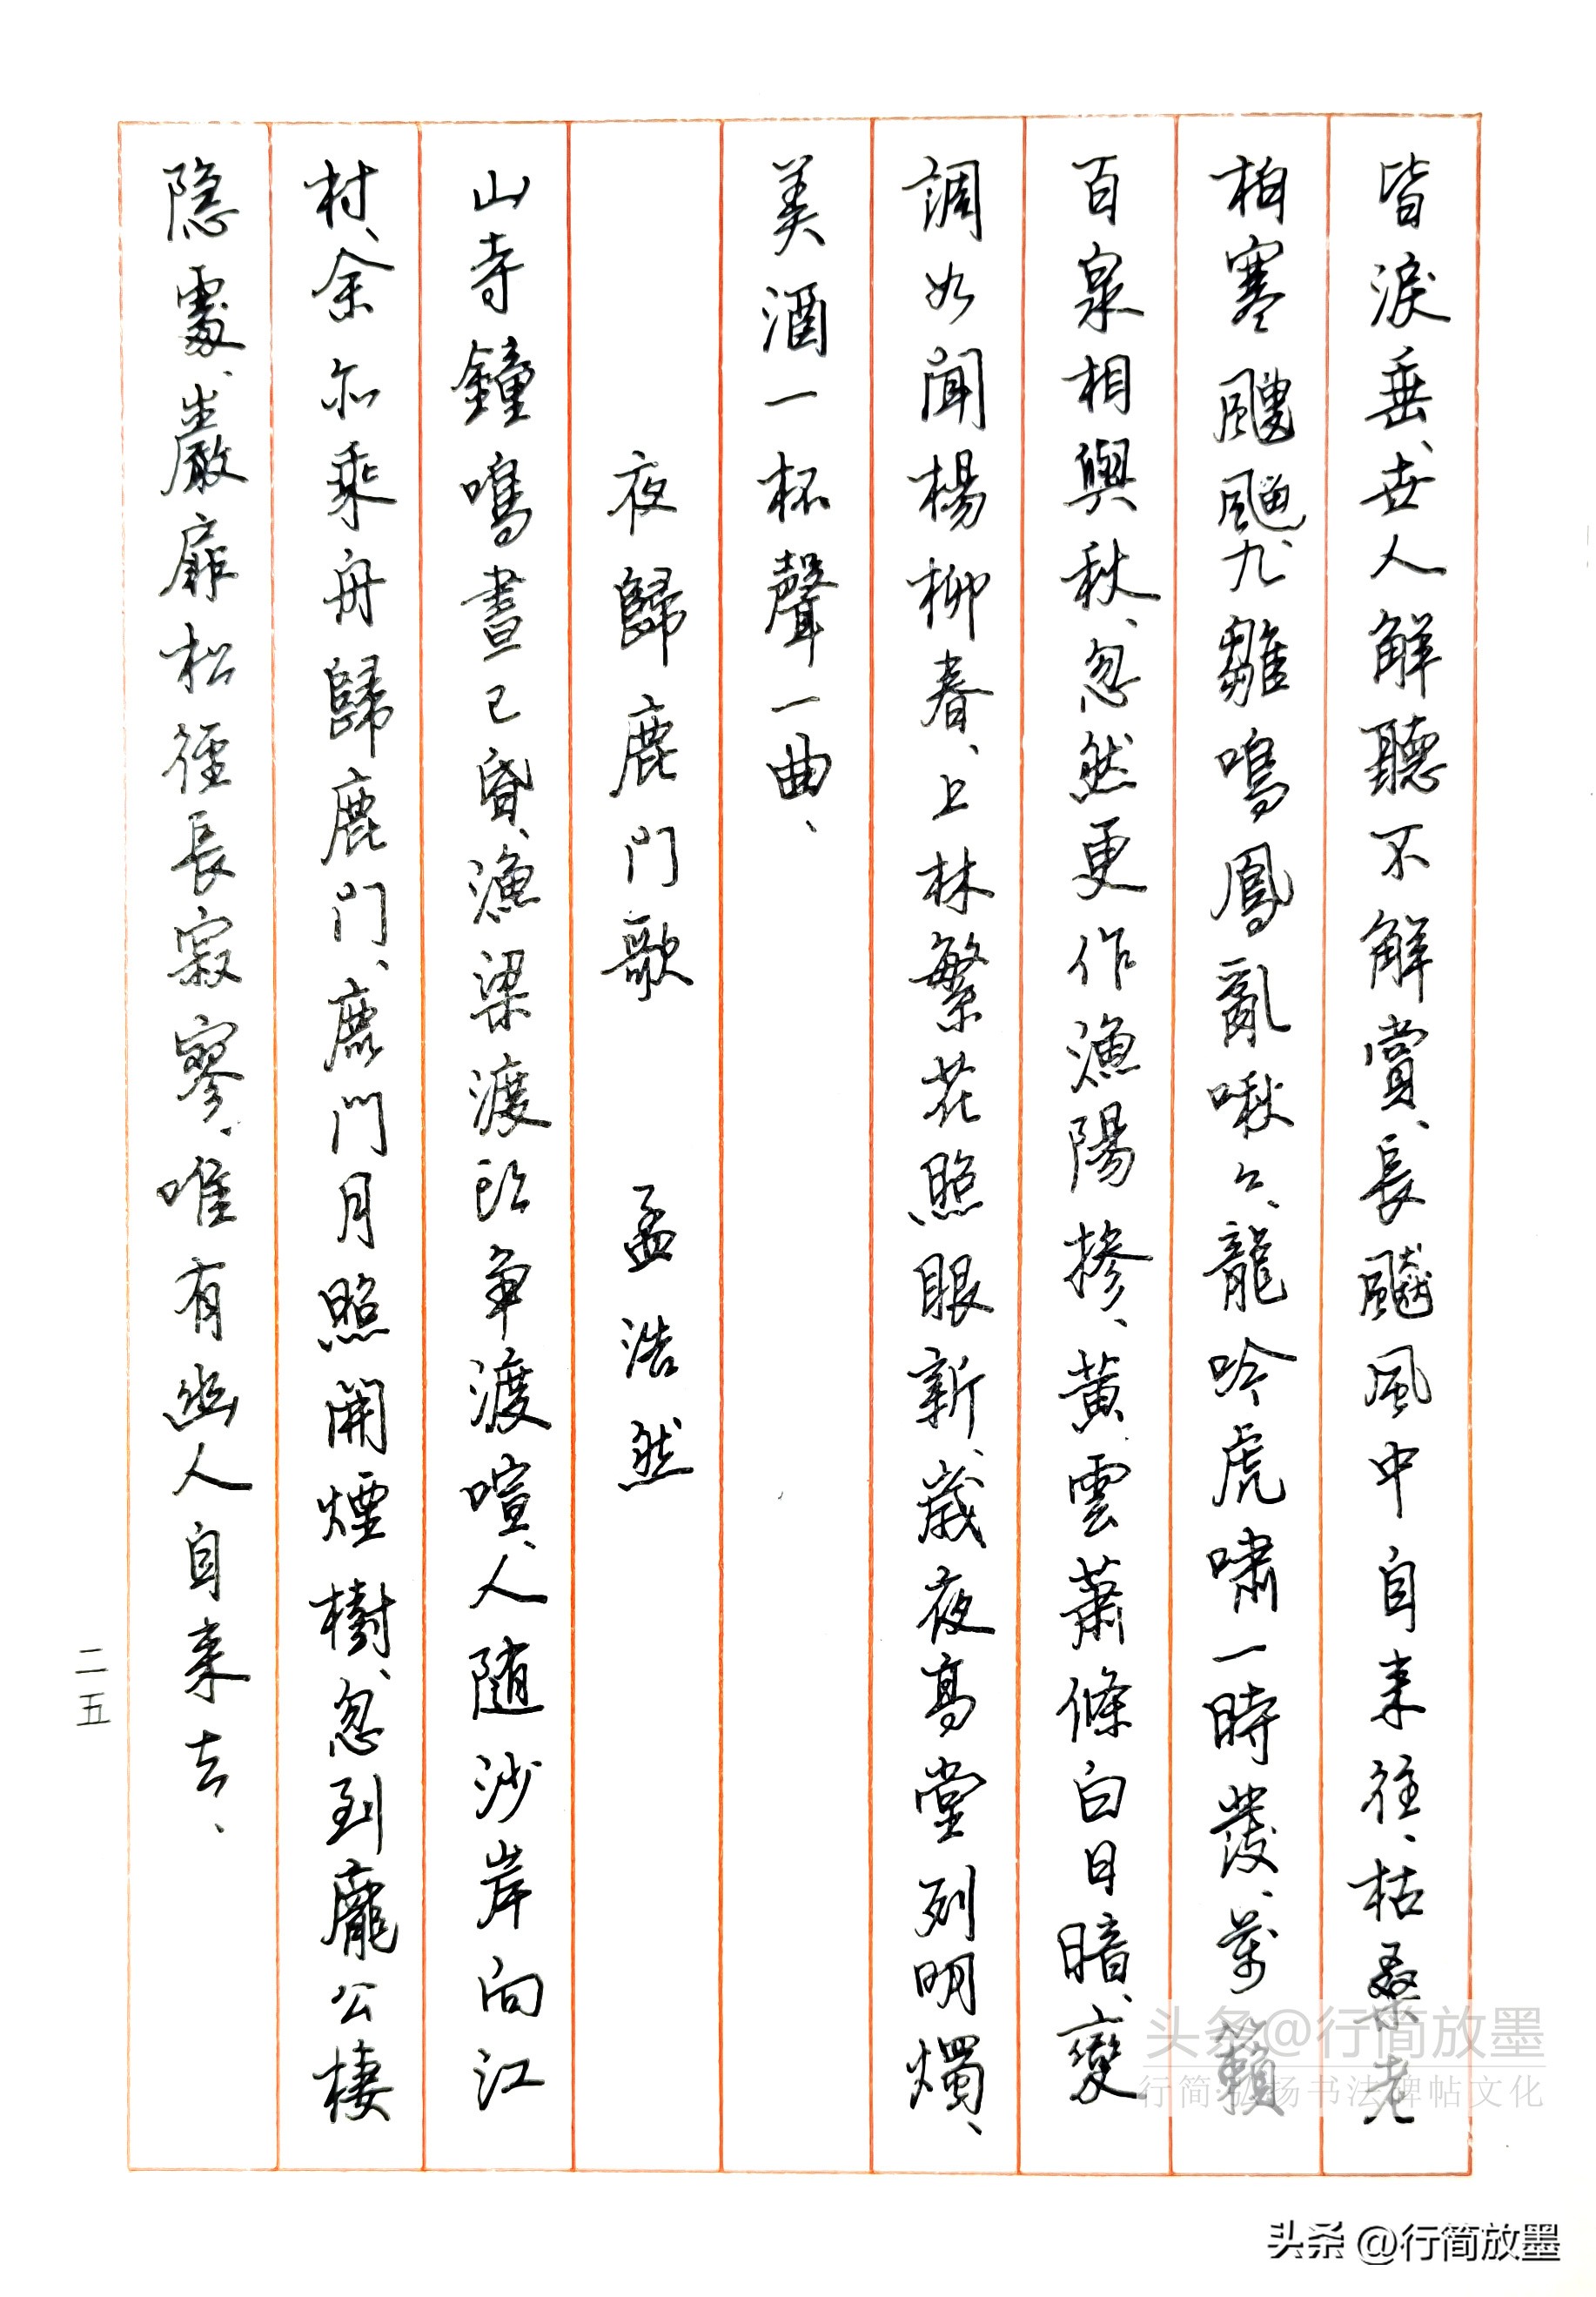 皆淚垂、世人解聽不解賞、長飇風中自来往、枯桑老
柏寒颼飀、九雛鳴鳳亂啾々、龍吟虎嘯一時發、萬籟
百泉相與秋、忽然更作漁陽摻、黄雲蕭條白日暗、變
調如聞楊柳春、上林繁花照眼新、歲夜高堂列明燭、
美酒一杯聲一曲、
夜歸鹿門歌 孟浩然
山寺鐘鳴晝已昏、漁梁渡頭争渡喧、人随沙岸向江
村、余亦乘舟歸鹿門、鹿門月照開煙樹、忽到龐公棲
隐處、巖扉松徑長寂寥、唯有幽人自来去、
二五
头条@行简放墨
行简·弘扬书法碑帖文化
头条 @行简放墨